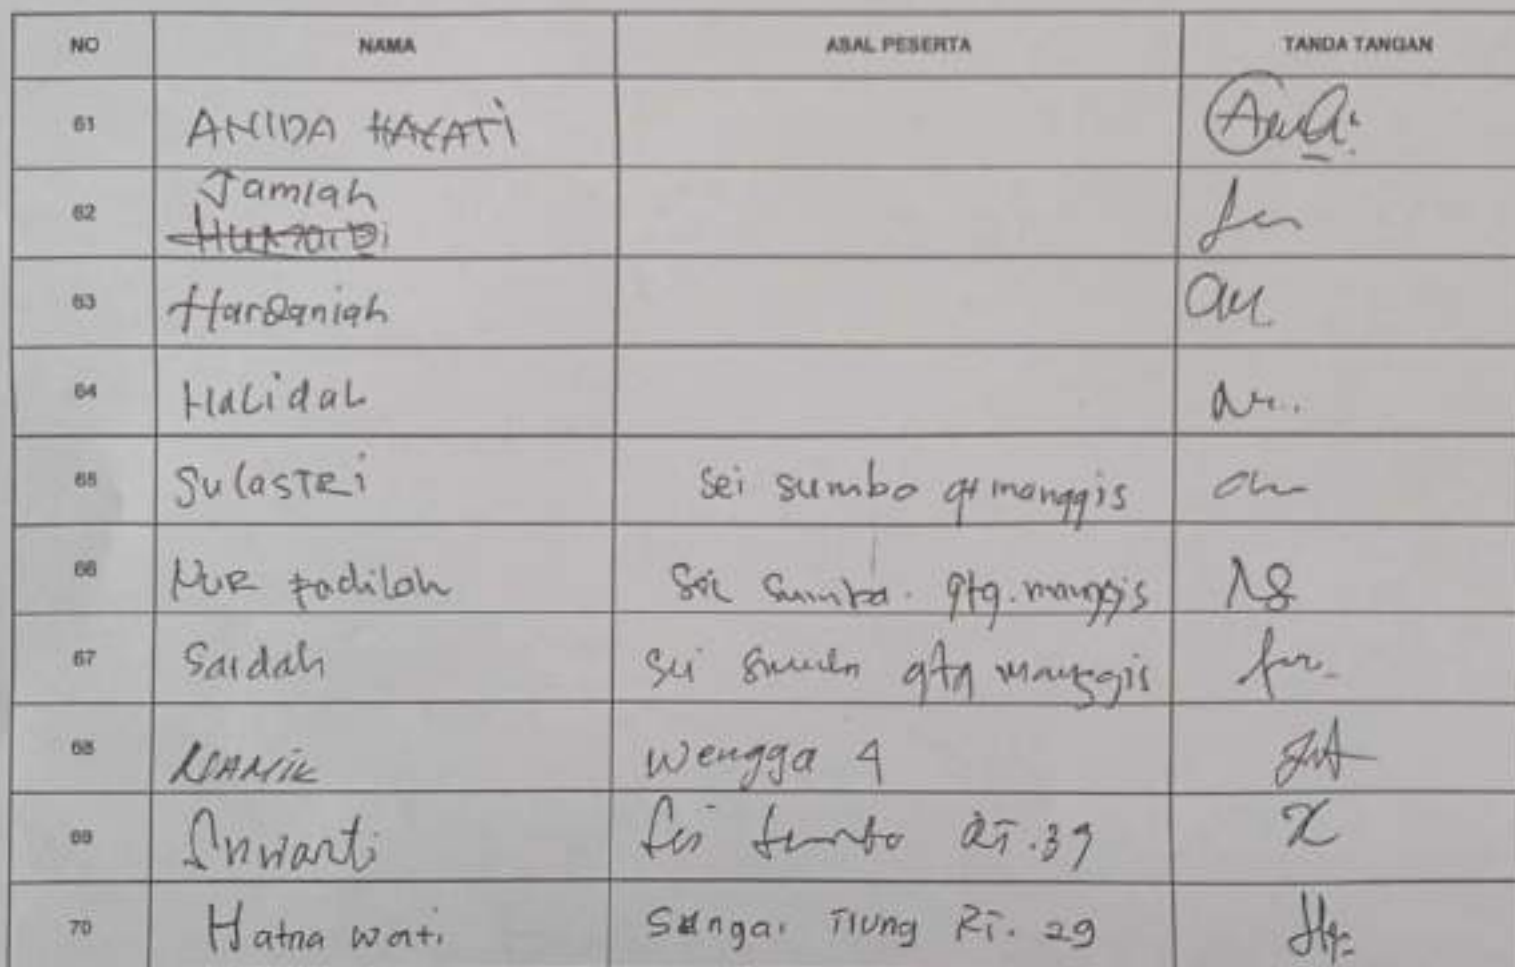 NO NAMA ASAL PESERTA TANDA TANGAN
61 ANIDA HAYATI
62 Jamiah
63 Hardaniah
64 Halidah
65 SulasTRi Sei sumbo manggis
66 NUR fadilah Sei Sumba. gtg. manggis
67 Saidah Sei gtg manggis
68 Wengga 4
69 Suwarti Sei RT.39
70 Hatna wati Sungai Tiung RT. 29